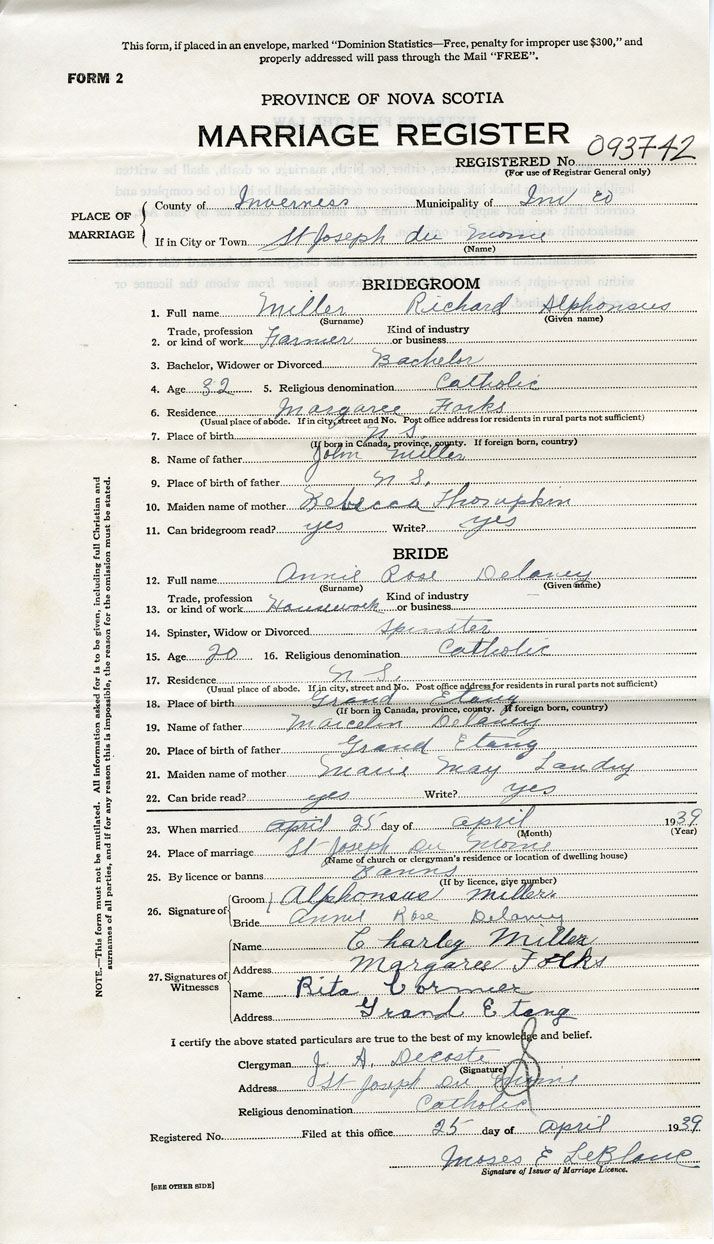 This form, if placed in an envelope, marked "Dominion Statistics—Free, penalty for improper use $300," and
properly addressed will pass through the Mail "FREE".
FORM 2
PROVINCE OF NOVA SCOTIA
MARRIAGE REGISTER
REGISTERED No. 093742
(For use of Registrar General only)
PLACE OF MARRIAGE
County of Inverness Municipality of Inv Co
If in City or Town St Joseph du Moine
(Name)
BRIDEGROOM
1. Full name Miller Richard Alphonsus
(Surname) (Given name)
2. Trade, profession or kind of work Farmer Kind of industry or business
3. Bachelor, Widower or Divorced Bachelor
4. Age 32 5. Religious denomination Catholic
6. Residence Margaree Forks
(Usual place of abode. If in city, street and No. Post office address for residents in rural parts not sufficient)
7. Place of birth N S.
(If born in Canada, province, county. If foreign born, country)
8. Name of father John Miller
9. Place of birth of father N S.
10. Maiden name of mother Rebecca Thompkin
11. Can bridegroom read? yes Write? yes
BRIDE
12. Full name Annie Rose Delaney
(Surname) (Given name)
13. Trade, profession or kind of work Housework Kind of industry or business
14. Spinster, Widow or Divorced Spinster
15. Age 20 16. Religious denomination Catholic
17. Residence N S.
(Usual place of abode. If in city, street and No. Post office address for residents in rural parts not sufficient)
18. Place of birth Grand Etang
(If born in Canada, province, county. If foreign born, country)
19. Name of father Marcelin Delaney
20. Place of birth of father Grand Etang
21. Maiden name of mother Marie May Landry
22. Can bride read? yes Write? yes
23. When married april 25 day of april 1939
(Month) (Year)
24. Place of marriage St Joseph Du Moine
(Name of church or clergyman's residence or location of dwelling house)
25. By licence or banns Banns
(If by licence, give number)
26. Signature of Groom Alphonsus Miller
Bride Annie Rose Delaney
27. Signatures of Witnesses
Name Charley Miller
Address Margaree Folks
Name Rita Cormier
Address Grand Etang
I certify the above stated particulars are true to the best of my knowledge and belief.
Clergyman J. A. Decoste
(Signature)
Address St Joseph du Moine
Religious denomination Catholic
Registered No. Filed at this office 25 day of april 1939
Moses E LeBlanc
Signature of Issuer of Marriage Licence.
[SEE OTHER SIDE]
NOTE.—This form must not be mutilated. All information asked for is to be given, including full Christian and
surnames of all parties, and if for any reason this is impossible, the reason for the omission must be stated.